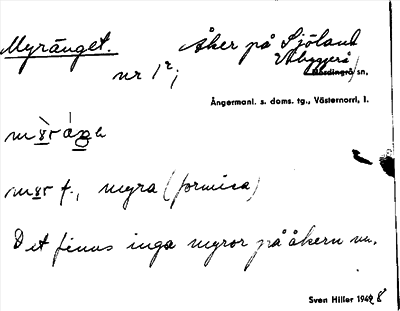 Myränget. Åker på Sjöland
nr 1², Vibyggerå
Nordingrå sn,
Ångermanl. s. doms. tg., Västernorrl. l.
myr f., myra (formica)
Det finns inga myror på åkern nu.
Sven Hiller 1948